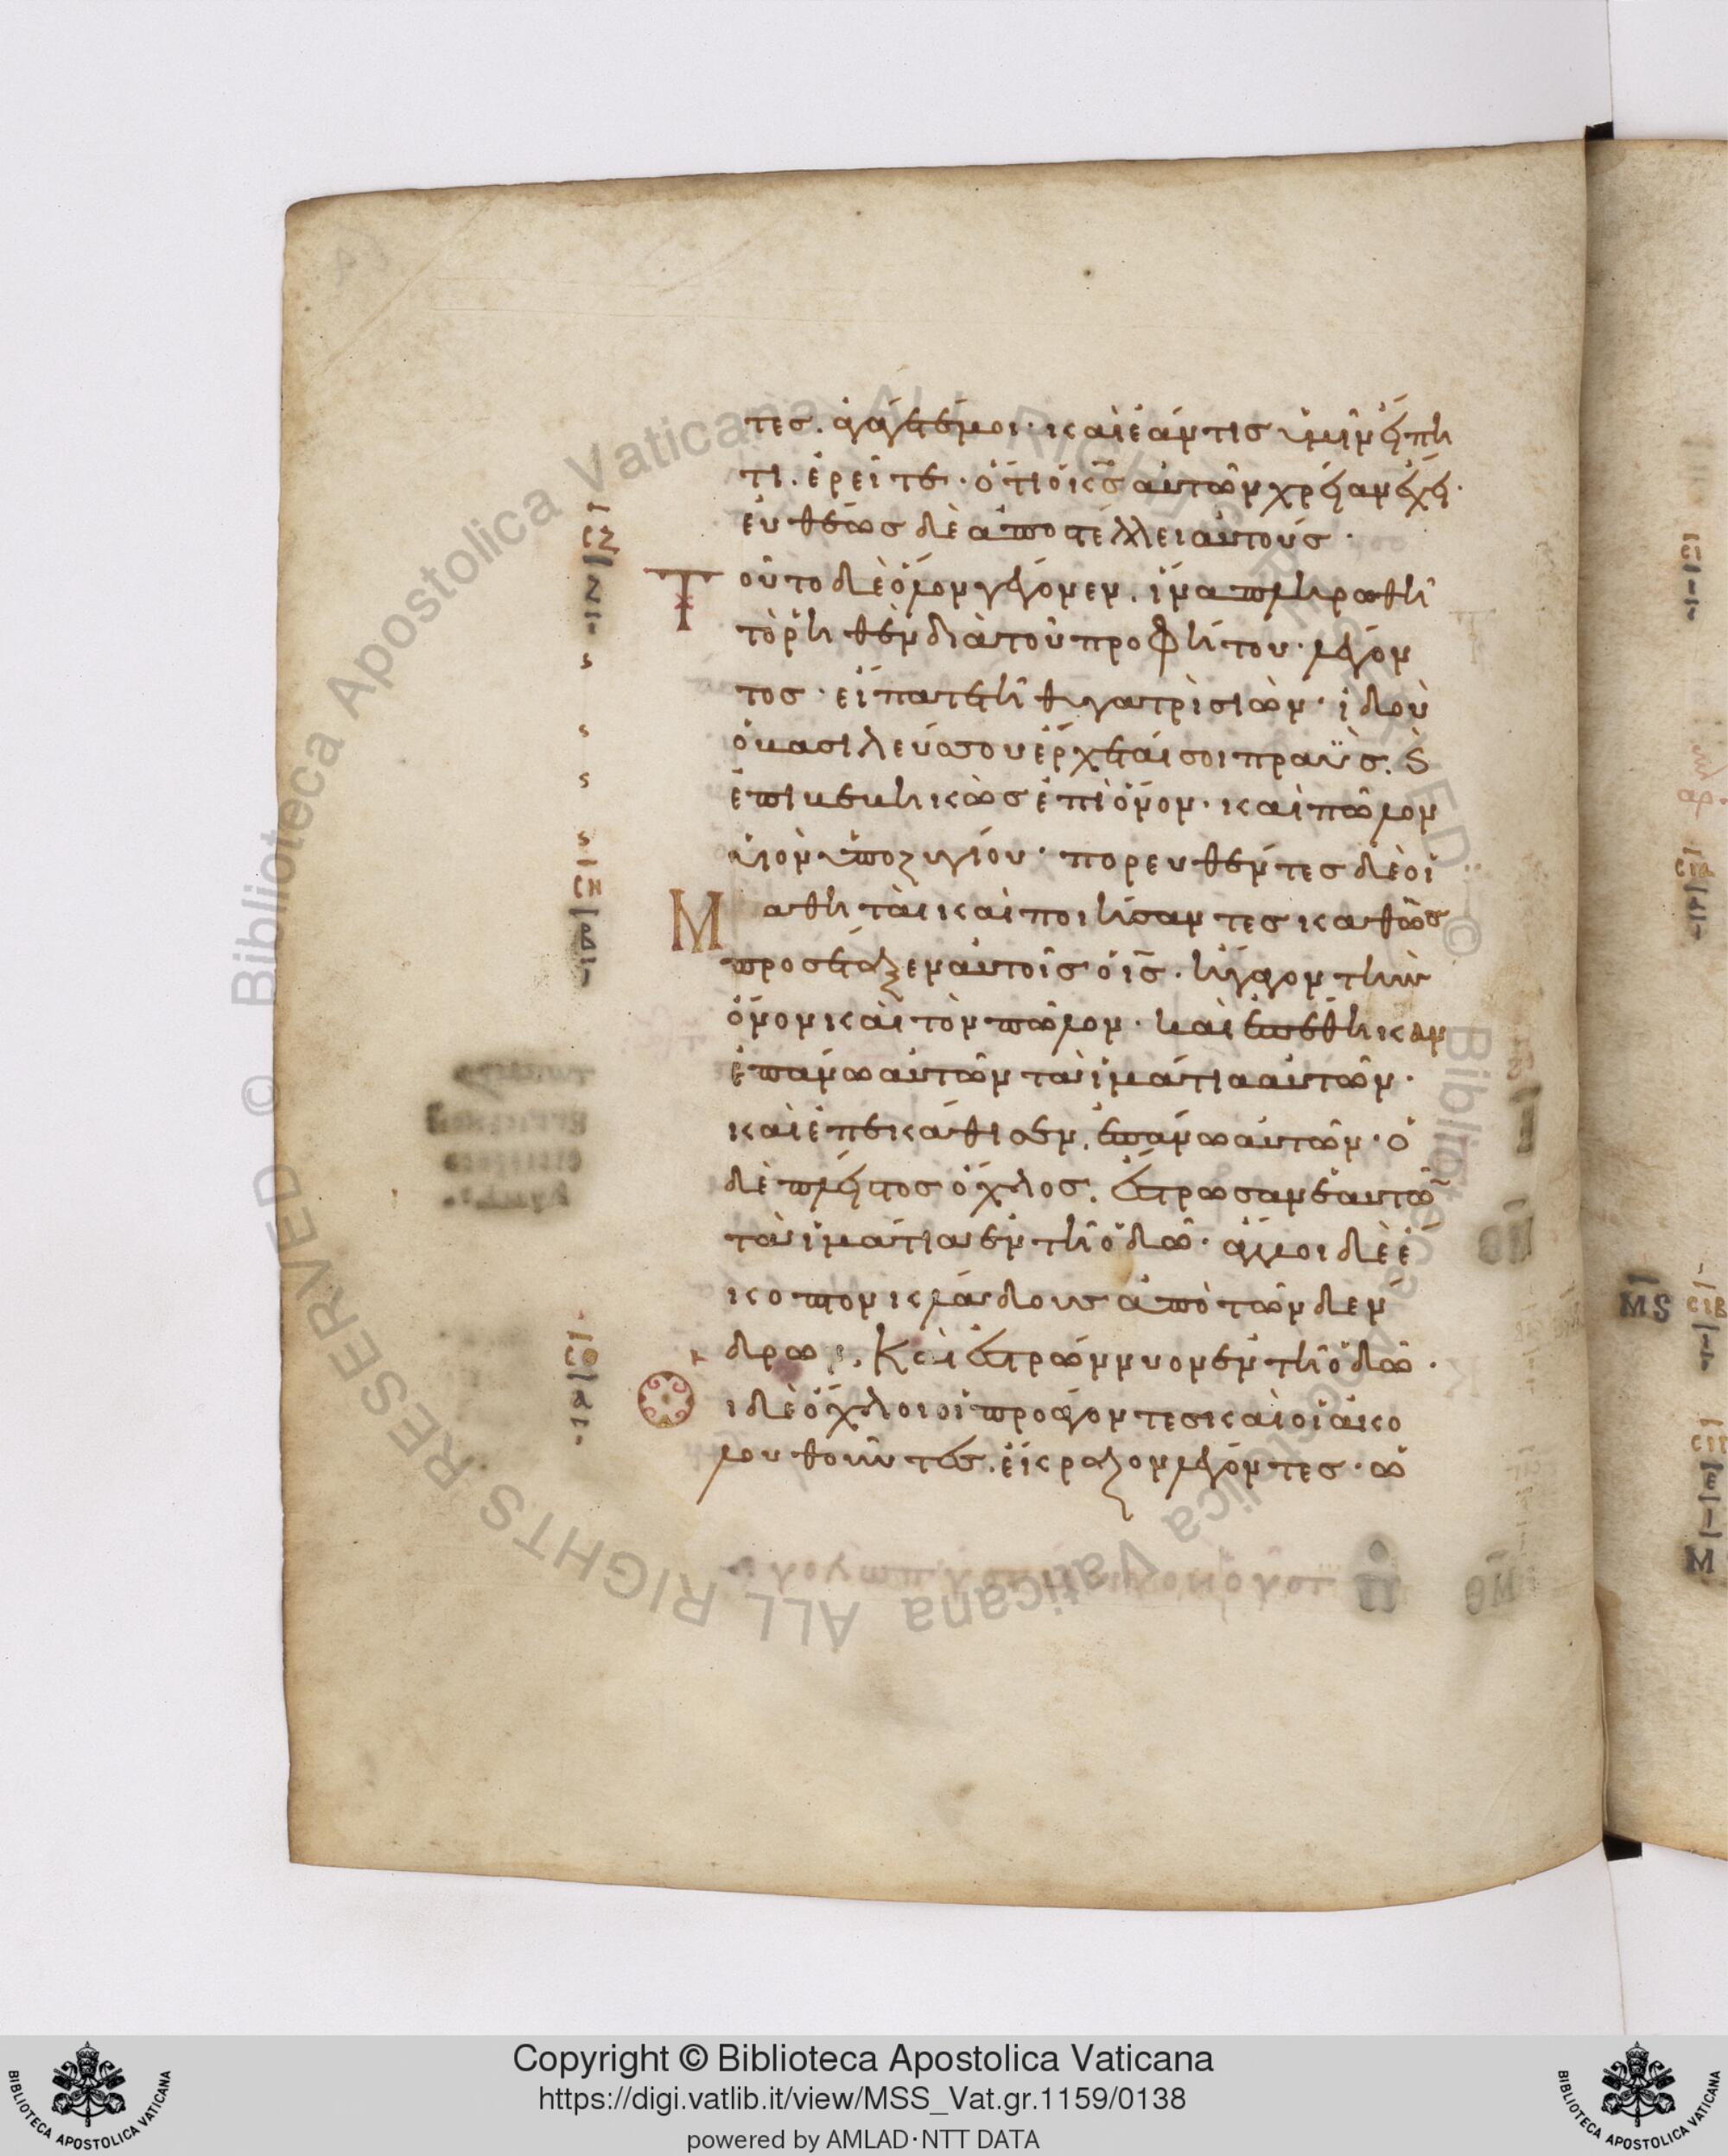 τες. ἀγάγετέ μοι· καὶ ἐάν τις ὑμῖν εἴπη
τι. ἐρεῖτε· ὅτι ὁ κ̅ς̅ αὐτῶν χρείαν ἔχει·
εὐθέως δὲ ἀποστέλλει αὐτούς·
Τοῦτο δὲ ὅλον γέγονεν. ἵνα πληρωθῆ
τὸ ῥηθὲν διὰ τοῦ προφήτου· λέγον
τος· εἴπατε τῆ θυγατρὶ σιών· ἰδοὺ
ὁ βασιλεύς σου ἔρχεταί σοι πραῢς. ϗ
ἐπιβεβηκὼς ἐπὶ ὄνον· καὶ πῶλον
υἱὸν ὑποζυγίου· πορευθέντες δὲ οἱ
Μαθηταὶ καὶ ποιήσαντες καθὼς
προσέταξεν αὐτοῖς ὁ ι̅ς̅. ἤγαγον τὴν
ὄνον καὶ τὸν πῶλον· καὶ ἐπέθηκαν
ἐπάνω αὐτῶν τὰ ἱμάτια αὐτῶν·
καὶ ἐπεκάθισεν. ἐπάνω αὐτῶν· ὁ
δὲ πλεῖστος ὄχλος. ἔστρωσαν ἑαυτῶ̅
τὰ ἱμάτια ἐν τῆ ὁδῶ· ἄλλοι δὲ ἔ
κοπτον κλάδους ἀπὸ τῶν δέν
δρων. Καὶ ἐστρώννυον ἐν τῆ ὁδῶ·
ι δὲ ὄχλοι οἱ προάγοντες καὶ οἱ ἀκο
λουθοῦντες. ἔκραζον λέγοντες· ὡ
Copyright © Biblioteca Apostolica Vaticana
https://digi.vatlib.it/view/MSS_Vat.gr.1159/0138
powered by AMLAD·NTT DATA
BIBLIOTECA APOSTOLICA VATICANA
BIBLIOTECA APOSTOLICA VATICANA